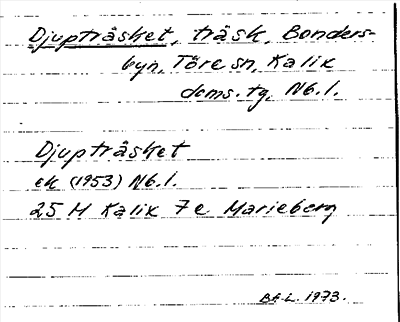 Djupträsket, träsk, Bonders-
byn, Töre sn, Kalix
doms. tg, Nb. l.
Djupträsket
ek (1953) Nb. l.
25 M Kalix 7 e Marieberg
B.E.L. 1973.